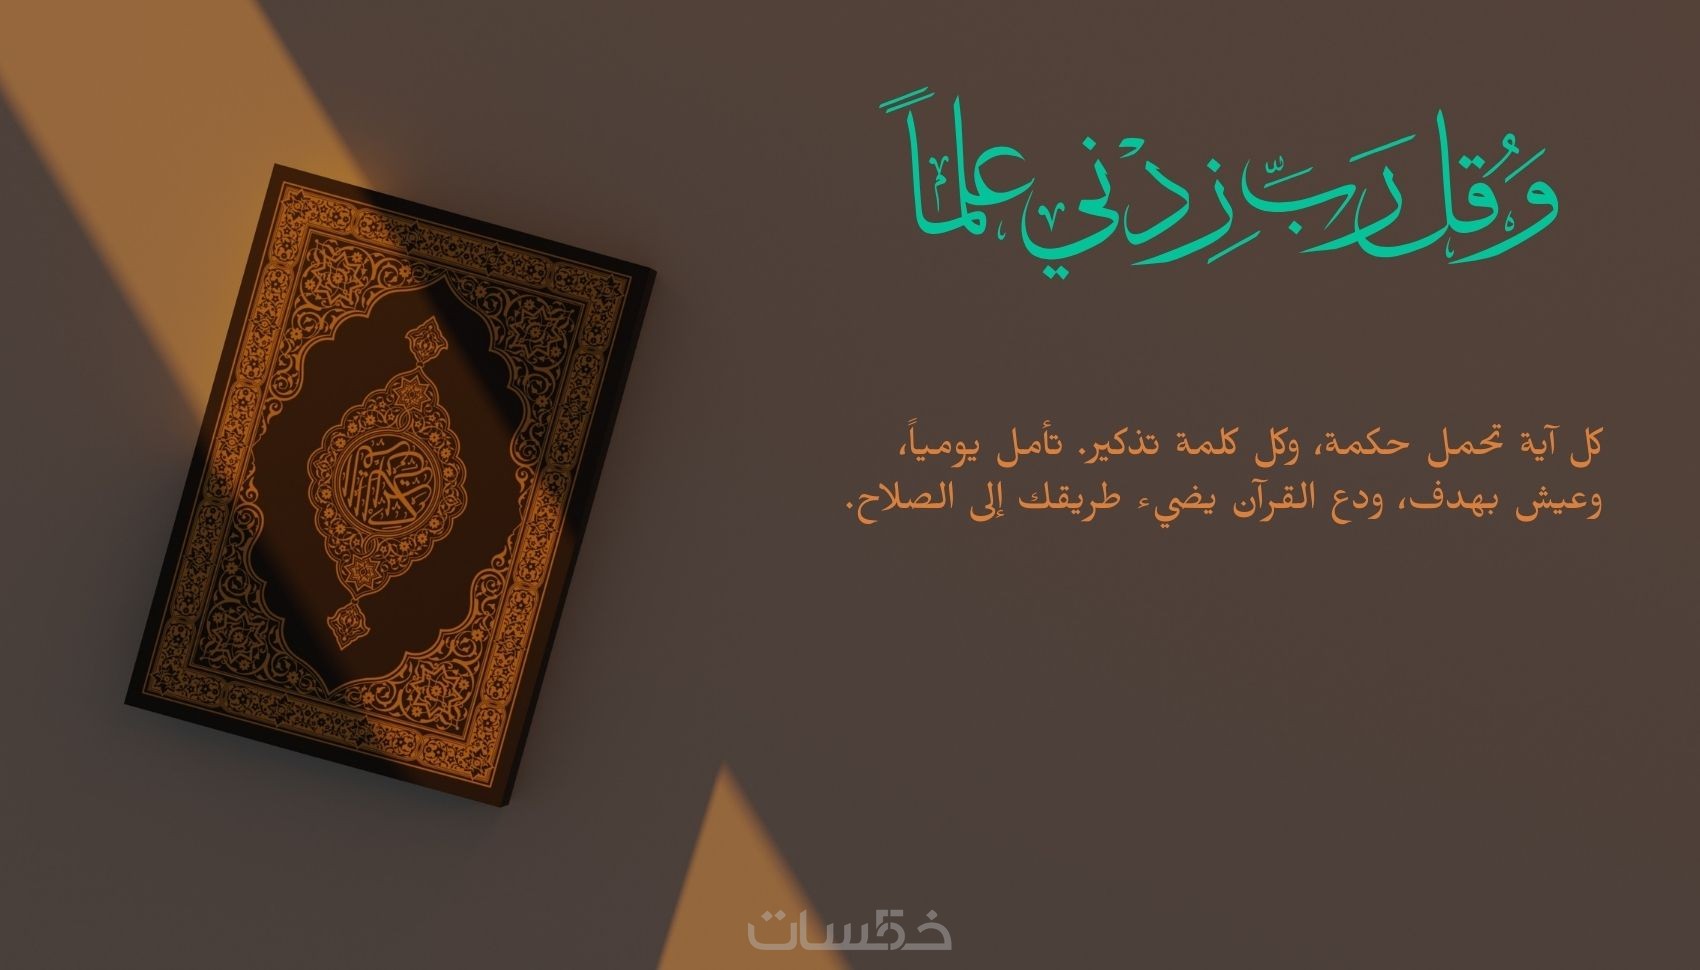 وَقُل رَبِّ زِدْني علماً
كل آية تحمل حكمة، وكل كلمة تذكير. تأمل يومياً،
وعيش بهدف، ودع القرآن يضيء طريقك إلى الصلاح.
خمسات